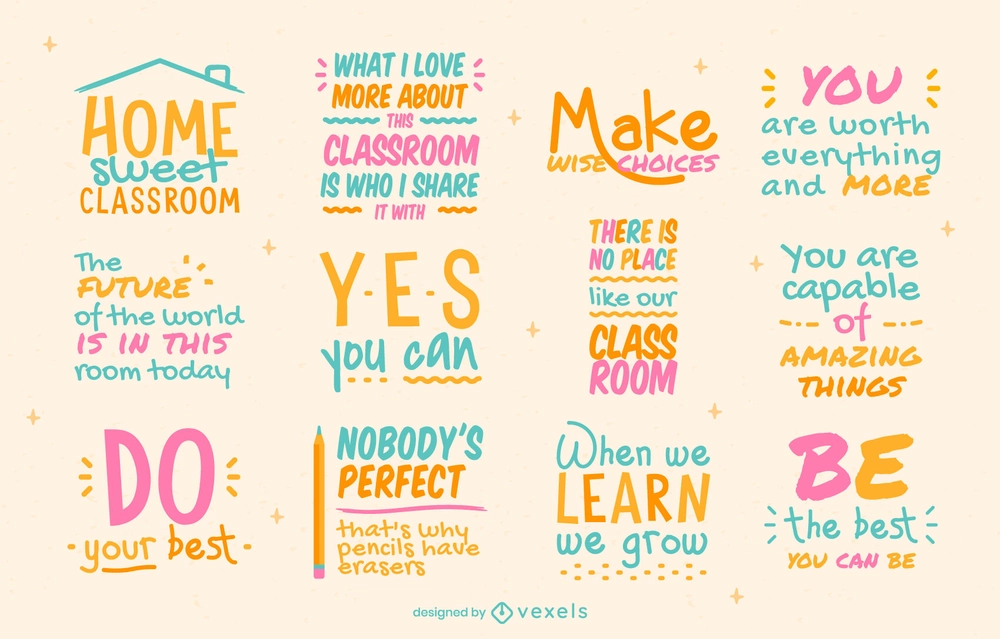 HOME
sweet
CLASSROOM
WHAT I LOVE
MORE ABOUT
THIS
CLASSROOM
IS WHO I SHARE
IT WITH
Make
WISE CHOICES
YOU
are worth
everything
and MORE
The
FUTURE
of the world
IS IN THIS
room today
Y-E-S
you can
THERE IS
NO PLACE
like our
CLASS
ROOM
You are
capable
of
AMAZING
THINGS
DO
your best
NOBODY'S
PERFECT
that's why
pencils have
erasers
When we
LEARN
we grow
BE
the best
YOU CAN BE
designed by vexels